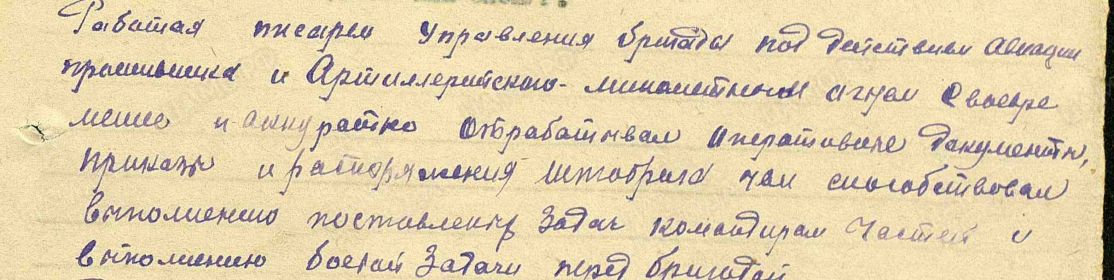 Работая писарем управления бригады под действием авиации
противника и Артиллерийского-минометным огнем своевре
менно и аккуратно отрабатывал оперативные документы,
приказы и распоряжения штабрига чем способствовал
выполнению поставлен задач командирам частей и
выполнению боевой задачи перед бригадой